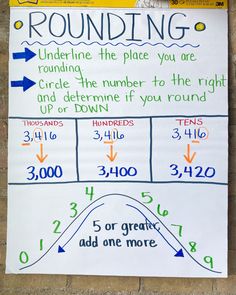 ROUNDING
Underline the place you are
rounding.
Circle the number to the right
and determine if you round
UP or DOWN
THOUSANDS HUNDREDS TENS
3,416 3,416 3,416
3,000 3,400 3,420
0 1 2 3 4 5 6 7 8 9
5 or greater,
add one more